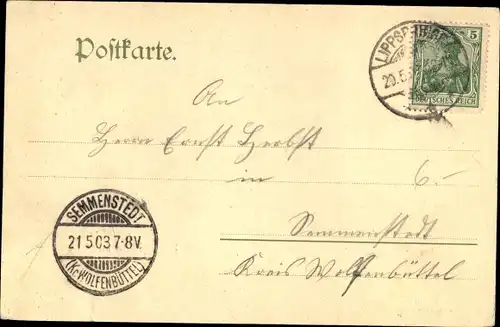 Postkarte.
LIPPSPRINGE
20.5.
5
DEUTSCHES REICH
An
Herrn Ernst Herbst
in 6.-
Semmenstedt
Kreis Wolfenbüttel
SEMMENSTEDT
21.5.03.7-8V.
(Kr. WOLFENBÜTTEL)